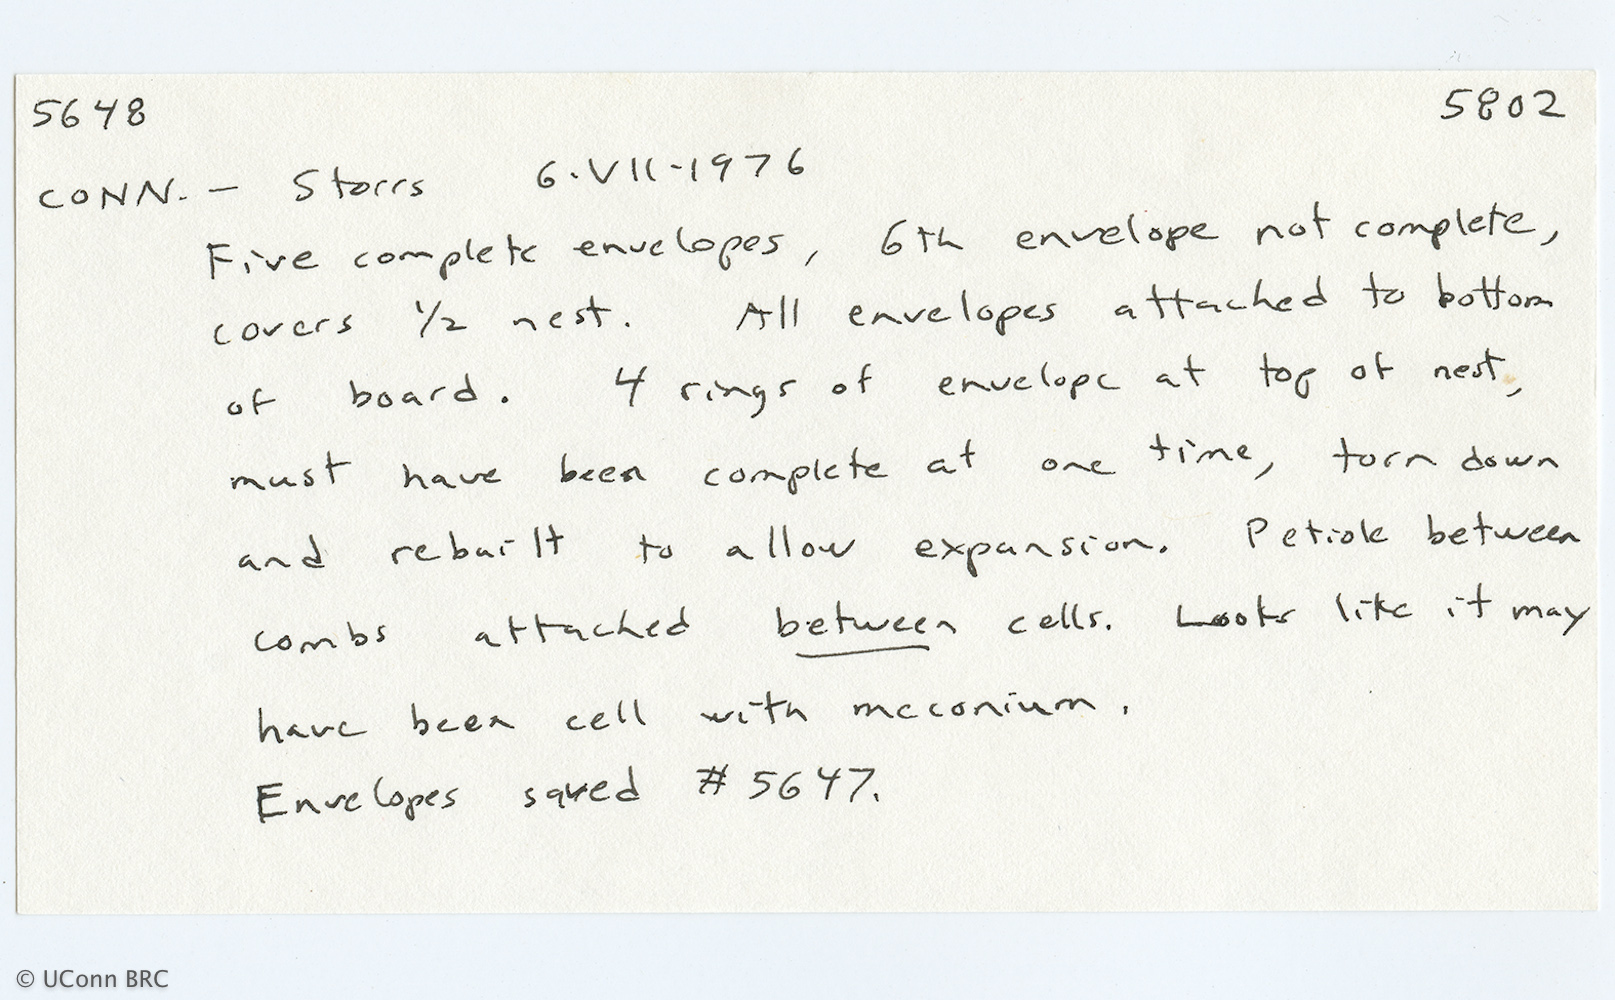 5648 5802
CONN. - Storrs 6.VII-1976
Five complete envelopes, 6th envelope not complete,
covers 1/2 nest. All envelopes attached to bottom
of board. 4 rings of envelope at top of nest,
must have been complete at one time, torn down
and rebuilt to allow expansion. Petiole between
combs attached between cells. Looks like it may
have been cell with meconium.
Envelopes saved #5647.
© UConn BRC